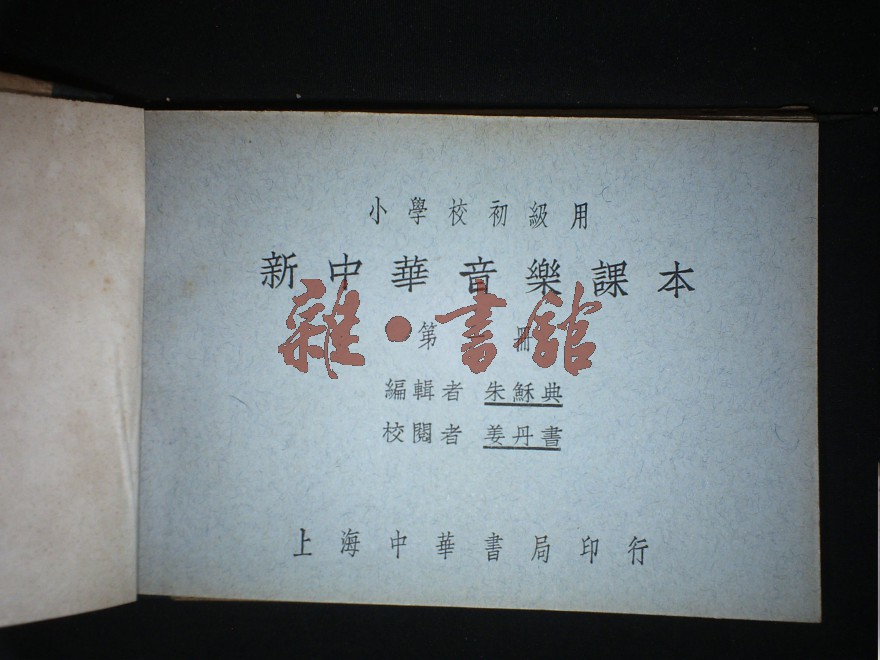 小學校初級用
新中華音樂課本
雜·書館
第 冊
編輯者 朱穌典
校閱者 姜丹書
上海中華書局印行